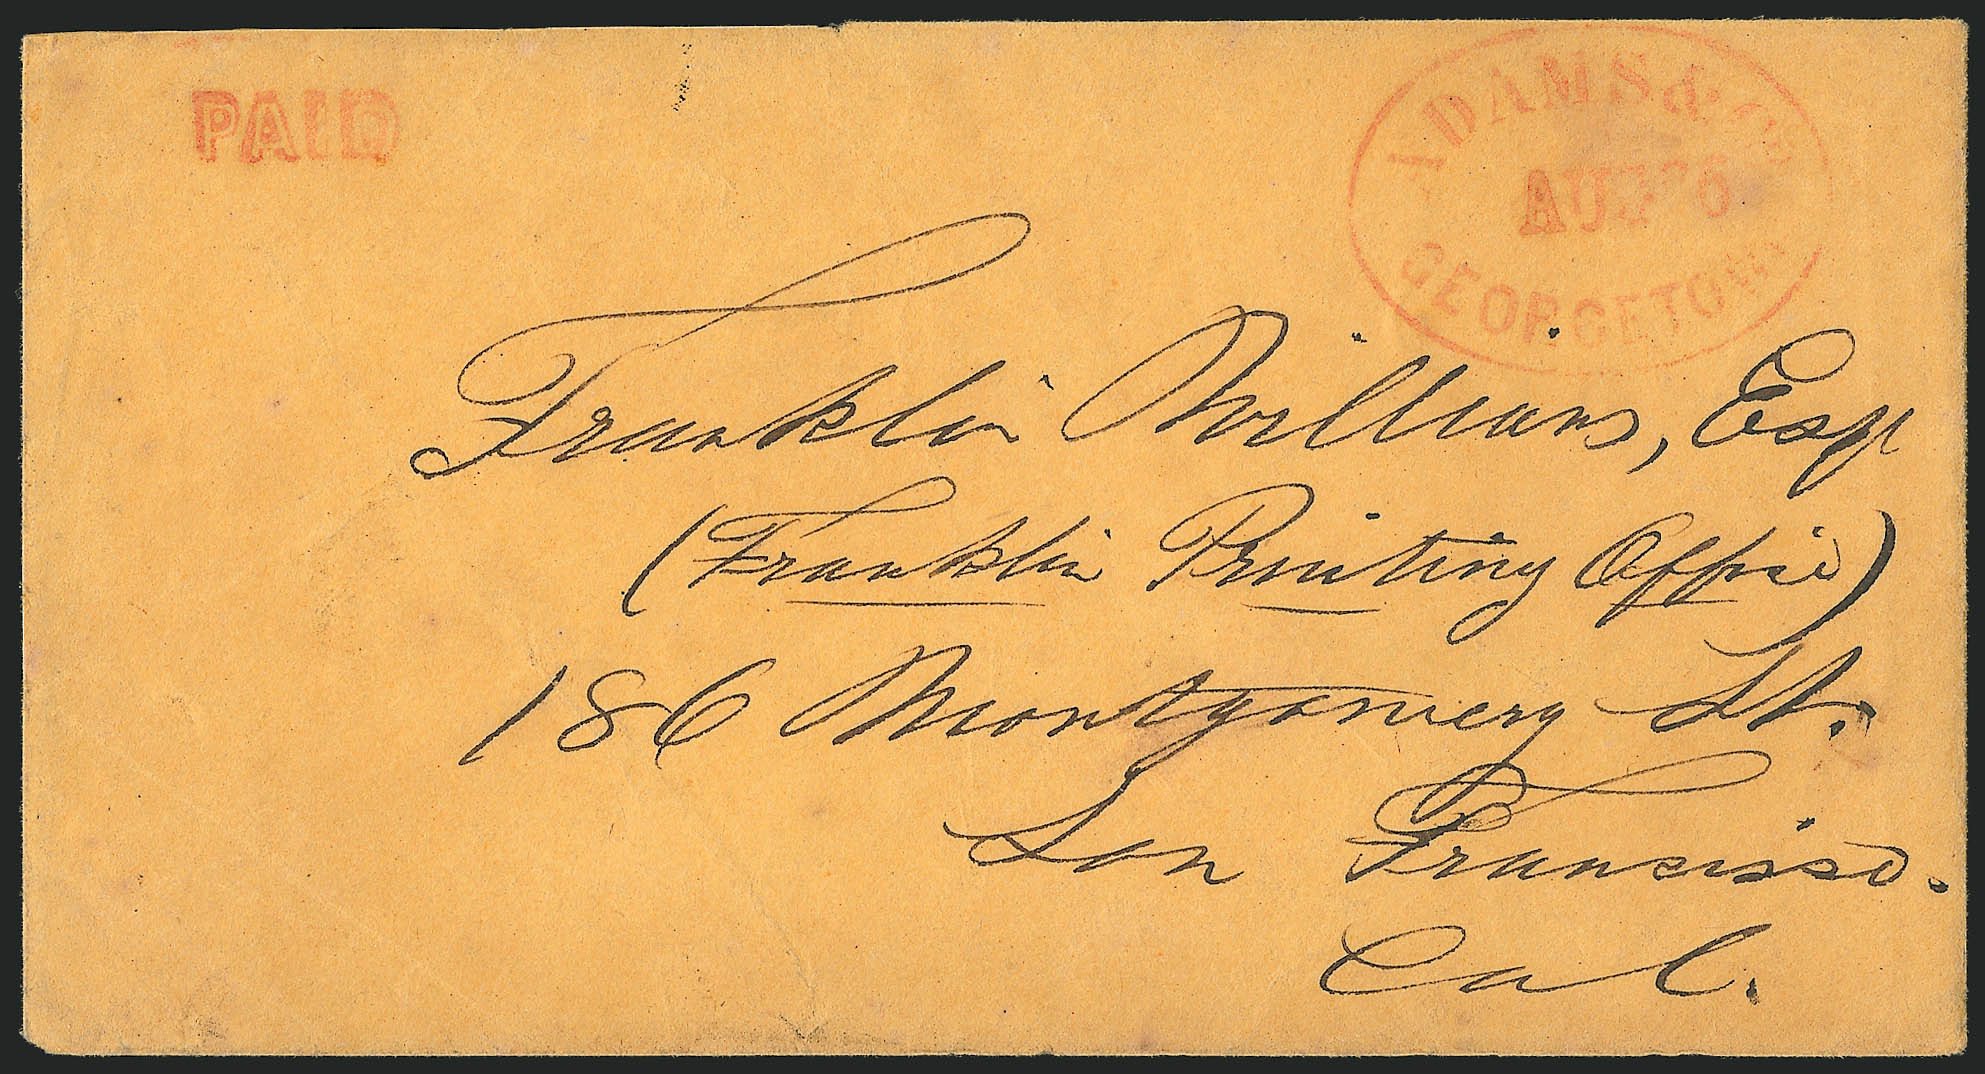 PAID
ADAMS & Co
AUG 6
GEORGETOWN
Franklin Williams, Esqr
(Franklin Printing Office)
186 Montgomery St.
San Francisco.
Cal.